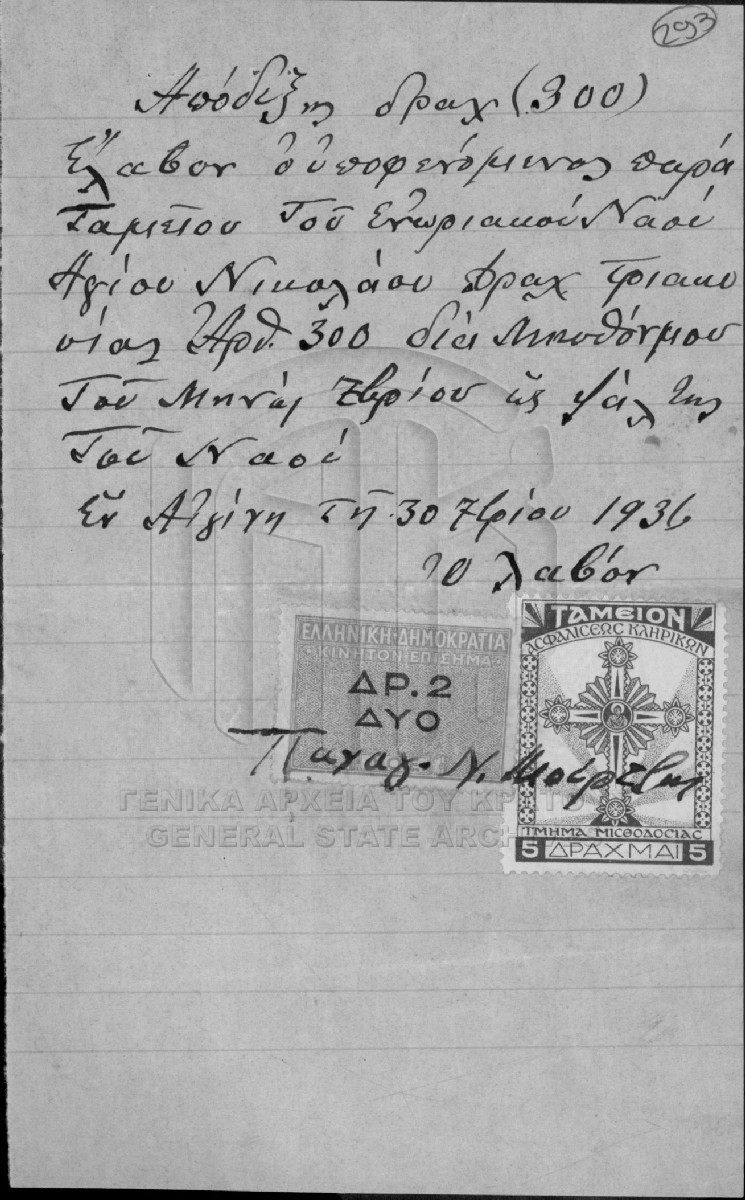 293
Απόδιξης δραχ (300)
Ἔλαβον ὁ ὑποφενόμενος παρά
Ταμείου Τοῦ Ἐνωριακού Ναού
Αγίου Νικολάου Δραχ τριακο
σίας Ἀρθ. 300 διά Μησθόνμου
Τοῦ Μηνός 7βρίου ὡς ψάλτης
Τοῦ Ναού
Ἐν Αἰγίνη τῆ 30 7βρίου 1936
Ὁ λαβόν
ΕΛΛΗΝΙΚΗ·ΔΗΜΟΚΡΑΤΙΑ
·ΚΙΝΗΤΟΝ ΕΠΙΣΗΜΑ·
ΔΡ. 2
ΔΥΟ
ΤΑΜΕΙΟΝ
ΑΣΦΑΛΙΣΕΩΣ ΚΛΗΡΙΚΩΝ
Παναγ. Ν.
ΤΜΗΜΑ ΜΙΣΘΟΔΟΣΙΑΣ
5 ΔΡΑΧΜΑΙ 5
ΓΕΝΙΚΑ ΑΡΧΕΙΑ ΤΟΥ ΚΡΑΤΟ
GENERAL STATE ARCH